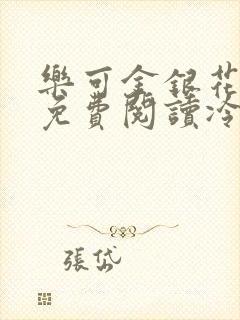 樂可金銀花
免費閱讀冷
張岱